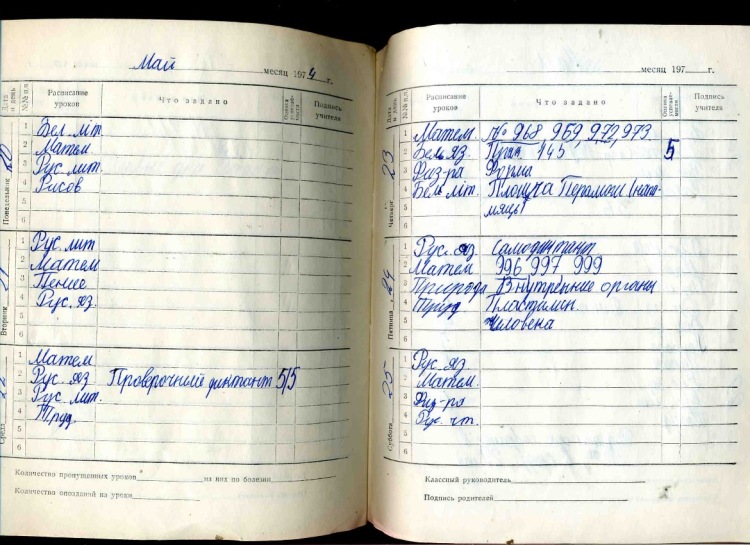 Май месяц 1974 г.
Дата и день
№№ п.п.
Расписание уроков
Что задано
Оценка успеваемости
Подпись учителя
Понедельник 20
1 Бел. літ.
2 Матем
3 Рус. лит.
4 Рисов
5
6
Вторник 21
1 Рус. лит
2 Матем
3 Пение
4 Рус. яз.
5
6
Среда 22
1 Матем
2 Рус. яз Проверочный диктант 5/5
3 Рус. лит.
4 Труд.
5
6
Количество пропущенных уроков из них по болезни
Количество опозданий на уроки
месяц 197 г.
Дата и день
№№ п.п.
Расписание уроков
Что задано
Оценка успеваемости
Подпись учителя
Четверг 23
1 Матем. № 968, 959, 972, 973
2 Бел. яз. Пр. 145 5
3 Физ-ра Форма
4 Бел. літ. Плошча Перамогі (напа-
5 мяць)
6
Пятница 24
1 Рус. яз. Самодиктант
2 Матем 996 997 999
3 Природа Внутренние органы
4 Труд Пластилин.
5 человека
6
Суббота 25
1 Рус. яз
2 Матем.
3 Физ-ра
4 Рус. чт.
5
6
Классный руководитель
Подпись родителей